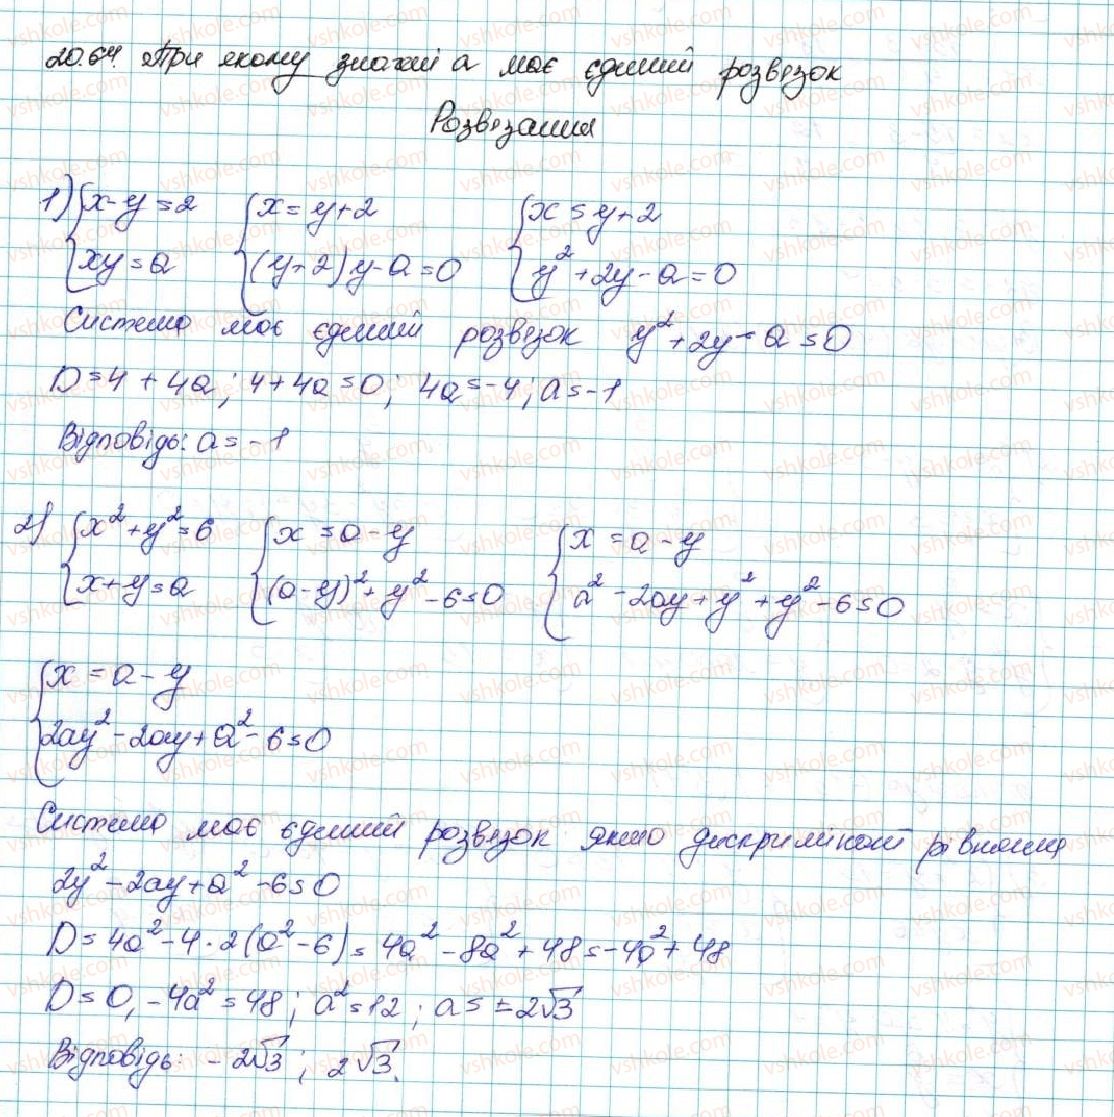 20.64. При якому значені a має єдиний розв'язок
Розв'язання
1) { x - y = 2 { x = y + 2 { x = y + 2
{ xy = a { (y + 2) y - a = 0 { y² + 2y - a = 0
Система має єдиний розв'язок y² + 2y - a = 0
D = 4 + 4a ; 4 + 4a = 0 ; 4a = -4 ; a = -1
Відповідь: a = -1
2) { x² + y² = 6 { x = a - y { x = a - y
{ x + y = a { (a - y)² + y² - 6 = 0 { a² - 2ay + y² + y² - 6 = 0
{ x = a - y
{ 2ay² - 2ay + a² - 6 = 0
Система має єдиний розв'язок якщо дискримінант рівняння
2y² - 2ay + a² - 6 = 0
D = 4a² - 4 · 2 (a² - 6) = 4a² - 8a² + 48 = -4a² + 48
D = 0, -4a² = 48 ; a² = 12 ; a = ± 2√3
Відповідь: - 2√3 ; 2√3.